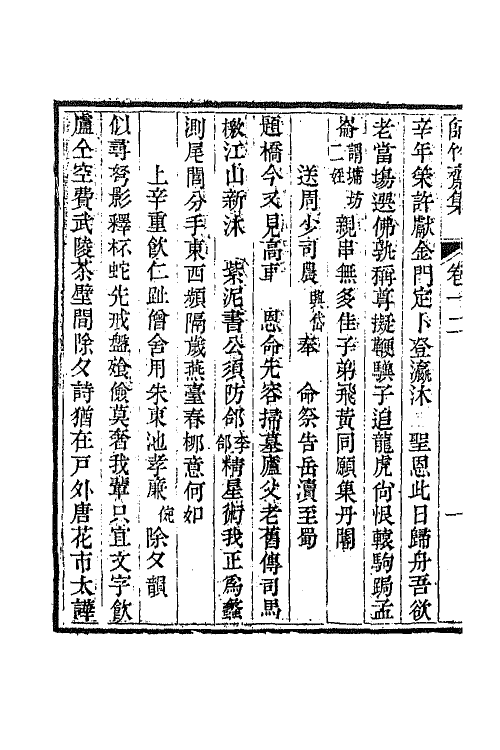 師竹齋集 卷十二 一
辛年榮許獻金門定卜登瀛沐 聖恩此日歸舟吾欲
老當場選佛孰稱尊擬鞭驥子追龍虎尙恨轅駒跼孟
崙謂墉坊二侄親串無多佳子弟飛黃同願集丹閣
送周少司農興岱奉 命祭告岳瀆至蜀
題橋今又見高車 恩命先容掃墓廬父老舊傳司馬
檄江山新沐 紫泥書公須防郃李郃精星術我正爲蠡
測尾閭分手東西頻隔歲燕臺春柳意何如
上辛重飲仁趾僧舍用朱東池孝廉 除夕韻
似尋弩影釋杯蛇先戒盤飱儉莫奢我輩只宜文字飲
盧仝空費武陵茶壁間除夕詩猶在戸外唐花市太譁